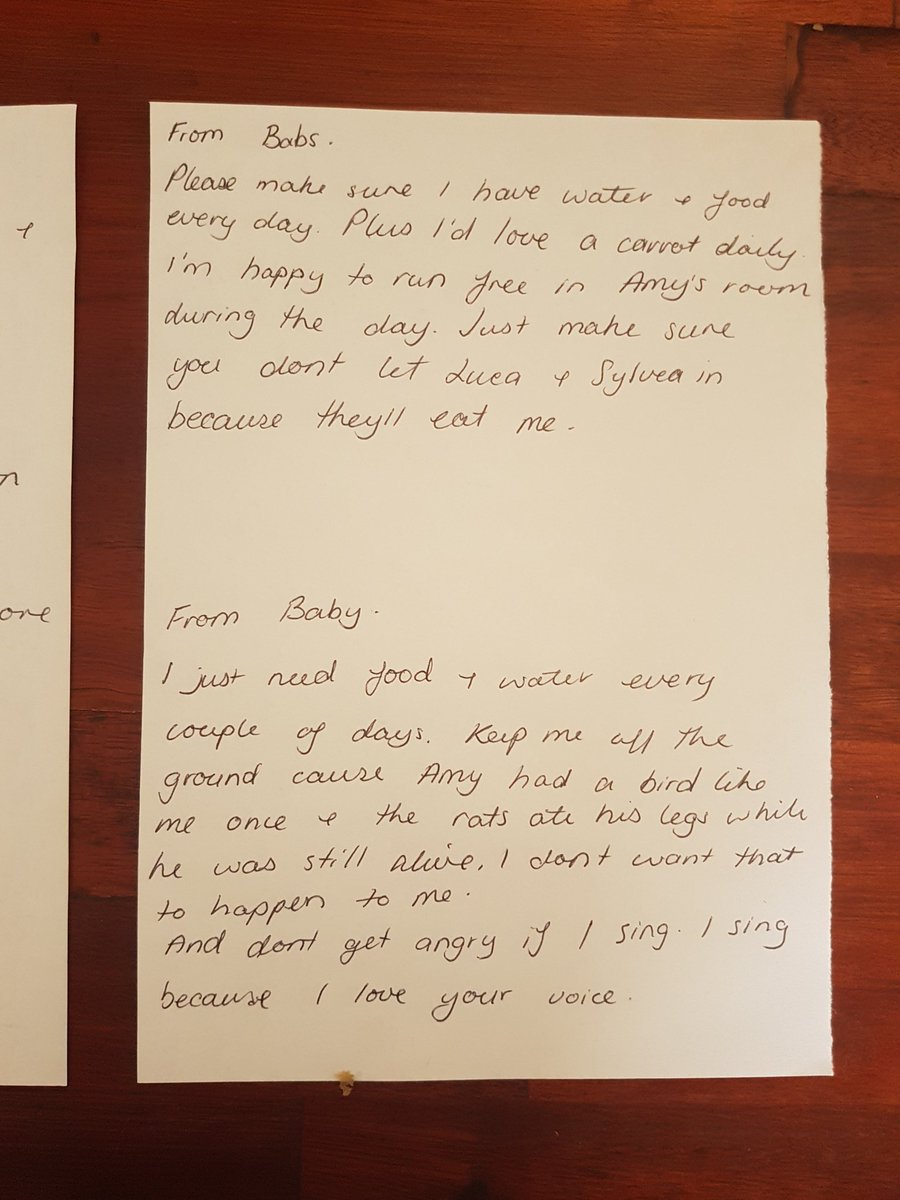 From Babs.
Please make sure I have water + food
every day. Plus I'd love a carrot daily.
I'm happy to run free in Amy's room
during the day. Just make sure
you dont let Luca + Sylvea in
because they'll eat me.
From Baby.
I just need food + water every
couple of days. Keep me off the
ground cause Amy had a bird like
me once + the rats ate his legs while
he was still alive. I dont want that
to happen to me.
And dont get angry if I sing. I sing
because I love your voice.
+
one